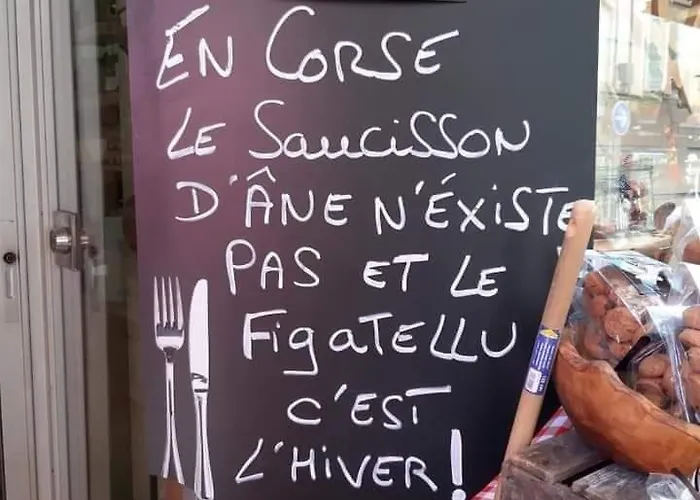 EN CORSE
LE SAUCISSON
D'ÂNE N'ÉXISTE
PAS ET LE
FIGATELLU
C'EST
L'HIVER !